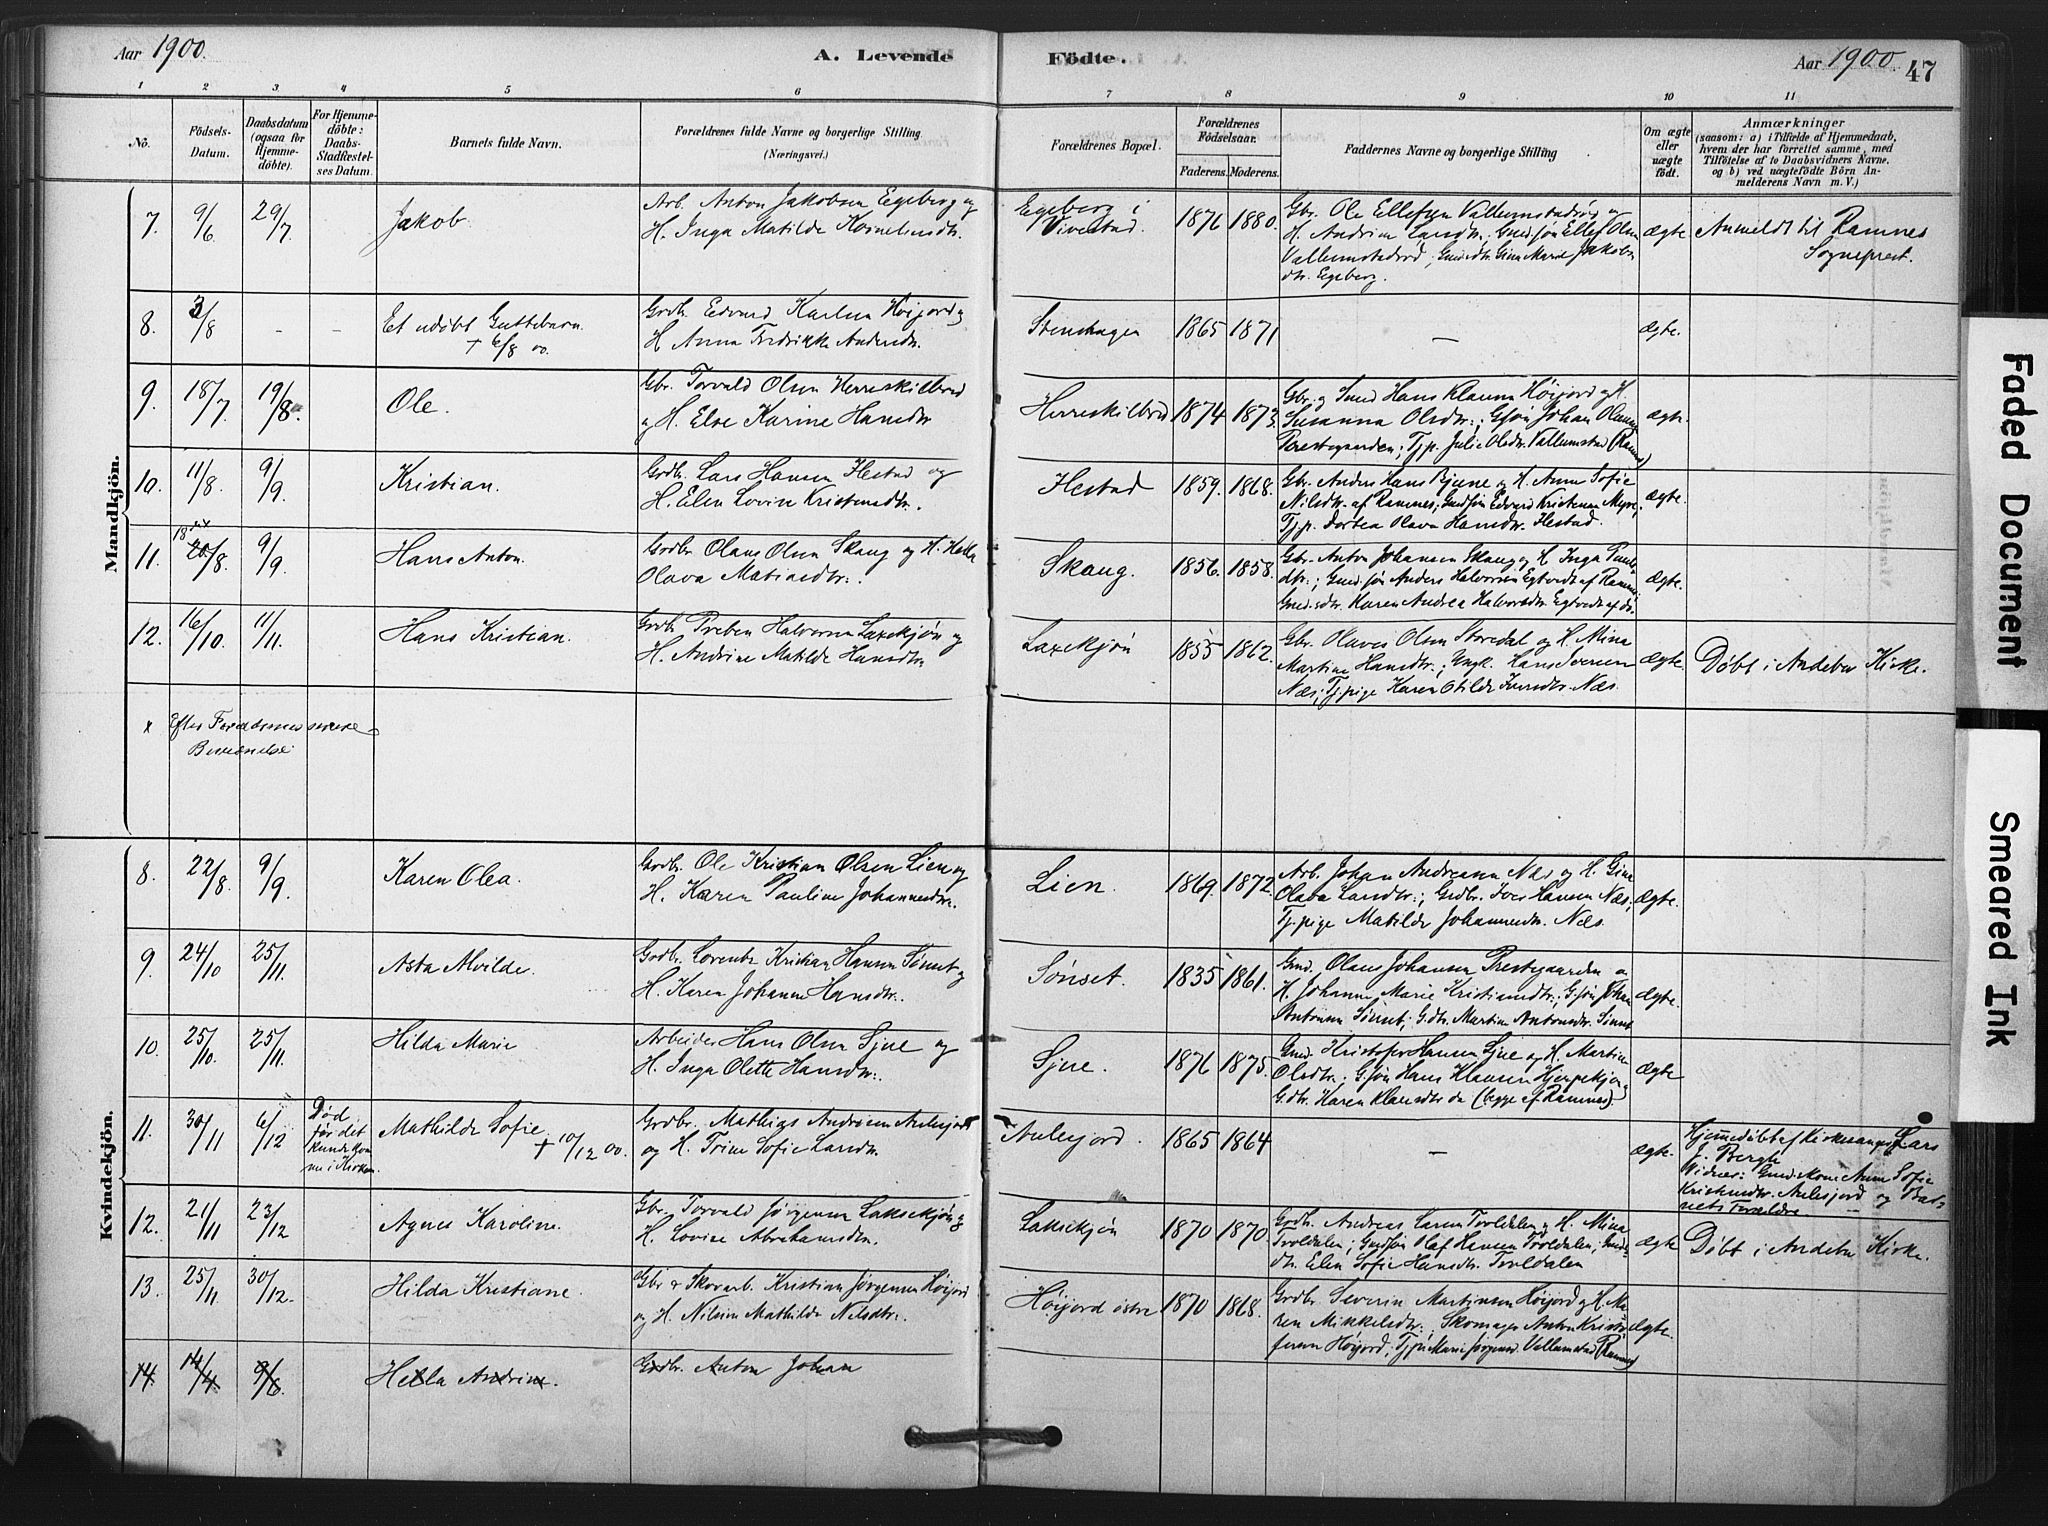 Aar 1900.
A. Levende Födte.
Aar 1900
47
1 2 3 4 5 6 7 8 9 10 11
No.
Födsels-
Datum.
Daabsdatum
(ogsaa for
Hjemme-
döbte).
For Hjemme-
döbte:
Daabs-
Stadfæstel-
ses Datum.
Barnets fulde Navn.
Forældrenes fulde Navne og borgerlige Stilling
(Næringsvei.)
Forældrenes Bopæl.
Forældrenes
Födselsaar.
Faderens. Moderens.
Faddernes Navne og borgerlige Stilling
Om ægte
eller
uægte
födt.
Anmærkninger
(saasom: a) i Tilfælde af Hjemmedaab,
hvem der har forrettet samme, med
Tilföielse af to Daabsvidners Navne.
og b) ved uægtefödte Börn An-
melderens Navn m. V.)
Mandkjön.
7. 9/6 29/7 Jakob.
Arb. Anton Jakobsen Egeberg og
H. Inga Matilde Korneliusdtr.
Egeberg i
Vivestad.
1876 1880.
Gbr. Ole Ellefsen Vallumstadrød og
H. Andrine Larsdtr.; Gmd.søn Ellef Olsen
Vallumstadrød; Gmdsdtr. Gina Marie Jakobs
dtr. Egeberg.
ægte
Anmeldt til Ramnes
Sogneprest.
8. 3/8 - - Et udøbt Guttebarn.
+ 6/8 00.
Grdb. Edvard Karlsen Høijord og
H Anna Fredrikke Andersdtr.
Stenshagen 1865 1871 — ægte.
9. 18/7 19/8. Ole.
Gbr. Torvald Olsen Herreskilbred
og H. Else Karine Hansdtr
Herreskilbred 1874 1873.
Gbr. og Smed Hans Klausen Høijord og H.
Susanna Olsdtr.; Gsøn Johan Olsen
Prestegaarden; Tjp. Julie Olsdtr. Vallumstad (Ramnes)
ægte.
10. 11/8. 9/9. Kristian.
Grdb. Lars Hansen Hestad og
H. Elen Lovise Kristensdtr.
Hestad 1859. 1868.
Gbr. Anders Hans Bjune og H. Anne Sofie
Nilsdtr. af Ramnes; Gmdsøn Edvard Kristensen Myre,
Tjp. Dortea Olava Hansdtr. Hestad.
ægte.
11. 18 x 20/8. 9/9. Hans Anton.
Grdbr Olaus Olsen Skaug og H. Hella
Olava Matiasdtr.
Skaug. 1856. 1858.
Gbr. Anton Johansen Skaug og H Inga Pauls
dtr.; Gmd.søn Anders Halvorsen Egtvedt af Ramnes;
Gmdsdtr. Karen Andrea Halvorsdtr. Egtvedt af do.
ægte.
12. 16/10. 11/11. Hans Kristian.
Grdb. Preben Halvorsen Laxekjøn og
H. Andrine Matilde Hansdtr
Laxekjøn 1855 1862.
Gbr. Olaves Olsen Storedal og H. Mina
Martine Hansdtr.; Ungk. Hans Iversen
Næs; Tj.pige Karen Otilde Iversdtr. Næs.
ægte.
Døbt i Andebu Kirke.
x Efter Forældrenes senere
Berigtigelse
Kvindekjön.
8. 22/8. 9/9. Karen Olea.
Grdbr. Ole Kristian Olsen Lien og
H. Karen Pauline Johannesdtr.
Lien. 1869. 1872.
Arb. Johan Andreasen Næs og H. Gine
Olava Larsdtr.; Grdbr. Iver Hansen Næs;
Tj.pige Matilde Johannesdtr. Næs.
ægte.
9. 24/10 25/11. Asta Alvilde.
Grdbr. Lorentz Kristian Hansen Sønset og
H. Karen Johanne Hansdtr.
Sønset. 1835 1861.
Gmd. Olaus Johansen Prestegaarden og
H. Johanne Marie Kristiansdtr.; G.søn Johan
Antonsen Sønset; G.dtr. Martine Antonsdtr. Sønset
ægte.
10. 25/10. 25/11. Hilda Marie
Arbeider Hans Olsen Sjue og
H. Inga Olette Hansdtr.
Sjue. 1876 1875.
Gmd. Kristofer Hansen Sjue og H. Martine
Olsdtr.; G.søn Hans Klausen Hjerpekjøn og
G.dtr. Karen Klausdtr do (begge af Ramnes).
ægte
11. 30/11 6/12
Død
før det
kunde kom
me i Kirken
Mathilde Sofie.
+ 10/12 00.
Grdbr. Mathias Andersen Aulesjord
og H. Trine Sofie Larsdtr.
Aulesjord. 1865 1864 — ægte.
Hjemmedøbt af Kirkesanger Lars
J. Berge
Widner: Gmd.kone Anne Sofie
Kristensdtr. Aulesjord og Bar-
nets Forældre.
12. 21/11 23/12 Agnes Karoline.
Gbr. Torvald Jørgensen Laksekjøn og
H. Lovise Abrahamsdtr.
Laksekjøn 1870 1870
Grdb. Andreas Larsen Troldalen og H. Mina
Troldalen; Gmdsøn Olaf Hansen Troldalen; Gmds
dtr. Elen Sofie Hansdtr. Troldalen
ægte
Døbt i Andebu Kirke.
13. 25/11. 30/12. Hilda Kristiane.
Gbr & Skovarb. Kristian Jørgensen Høijord
og H. Nilsine Mathilde Nilsdtr.
Høijord østre 1870 1868.
Grdbr. Severin Martinsen Høijord og H. Ma-
ren Mikkelsdtr.; Skomager Anton Kristo
fersen Høijord; Tjp. Marie Jørgensd Vallumstad (Ramnes)
ægte.
14. 14/4 9/6 Hella Andrine.
Grdbr. Anton Johan
Faded Document
Smeared Ink